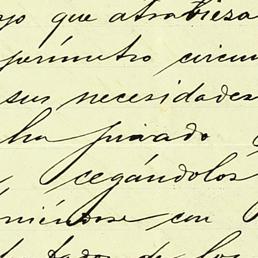 yo que atrabiesa
perímetro circun
sus necesidades
ha privado
cegándolos
niéndose con
todos de los